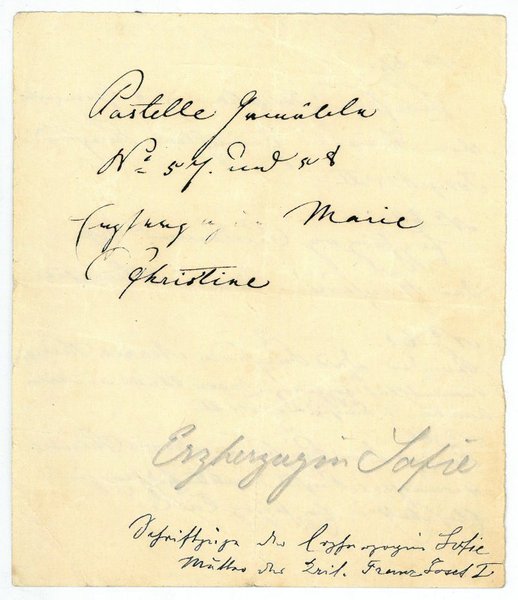 Pastelle Gemählde
Nº 57. und 58
Erzherzogin Marie
Christine
Erzherzogin Sofie
Schriftzüge der Erzherzogin Sofie
Mutter des Franz Josef I